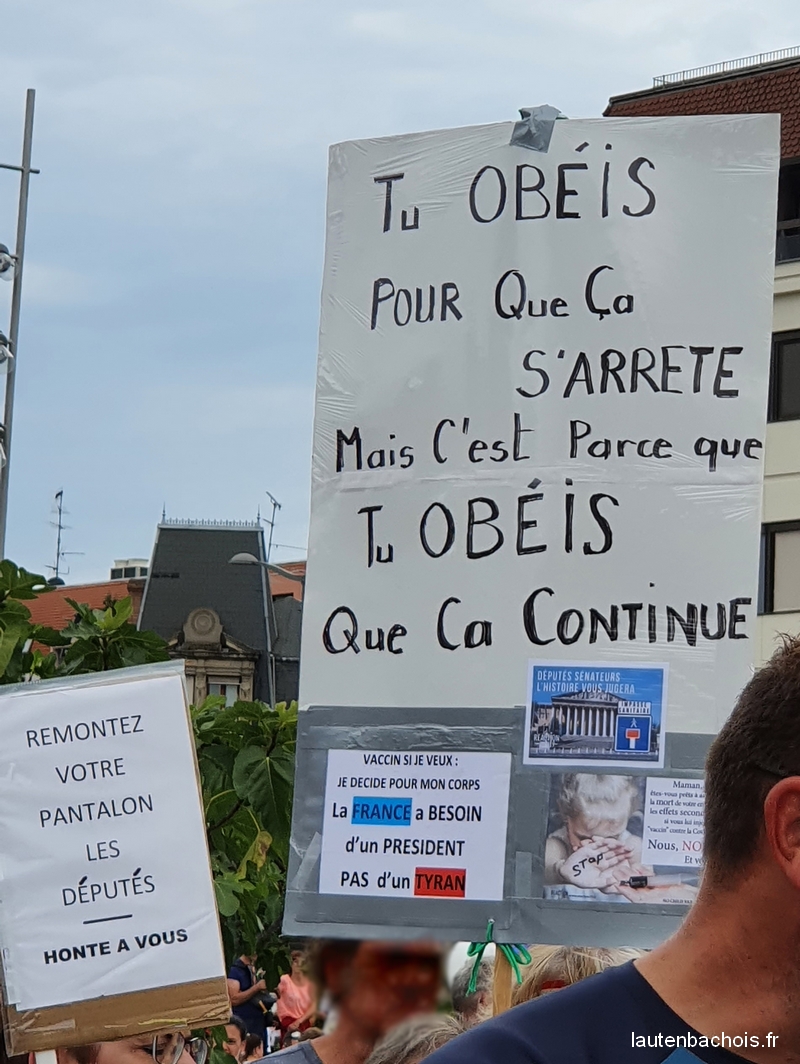 Tu OBÉIS
POUR Que Ça
S'ARRETE
Mais C'est Parce que
Tu OBÉIS
Que Ca CONTINUE
DÉPUTÉS SÉNATEURS
L'HISTOIRE VOUS JUGERA
IMPASSE
SANITAIRE
VACCIN SI JE VEUX :
JE DECIDE POUR MON CORPS
La FRANCE a BESOIN
d'un PRESIDENT
PAS d'un TYRAN
Maman,
êtes-vous prête à a
la mort de votre en
les effets second
si vous lui inje
"vaccin" contre la Cov
Nous, NO
Et v
STOP
REMONTEZ
VOTRE
PANTALON
LES
DÉPUTÉS
HONTE A VOUS
lautenbachois.fr